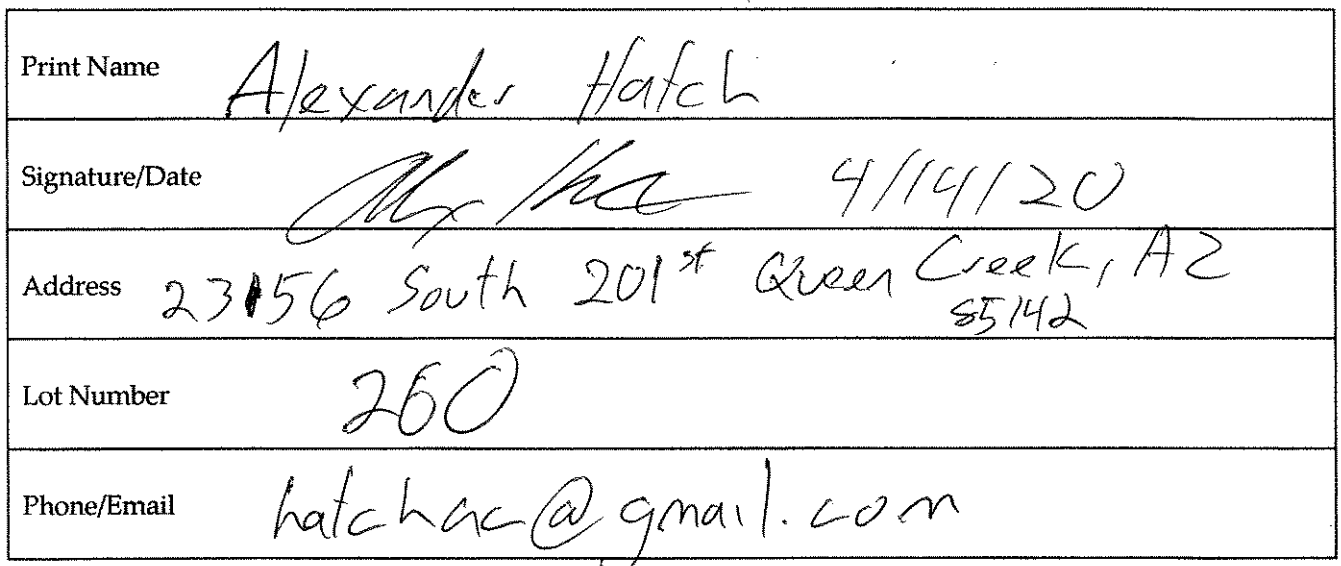 Print Name Alexander Hatch
Signature/Date Alex Hatch 4/14/20
Address 23156 South 201st Queen Creek, AZ
85142
Lot Number 260
Phone/Email hatchac@gmail.com